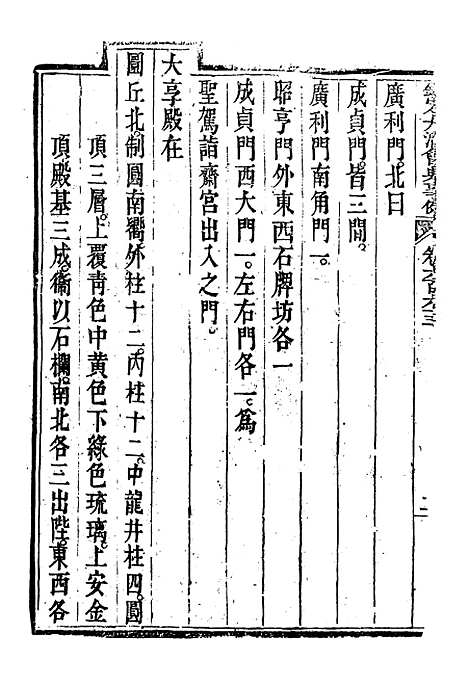 欽定大清會典事例 卷六百六十三 二
廣利門北曰
成貞門皆三間。
廣利門南角門一。
昭亨門外東西石牌坊各一
成貞門西大門一。左右門各一。為
聖駕詣齋宮出入之門。
大享殿在
圜丘北。制圓南嚮外柱十二。內柱十二。中龍井柱四。圓
頂三層。上覆青色中黃色下綠色琉璃。上安金
頂。殿基三成。衞以石欄。南北各三出陛。東西各